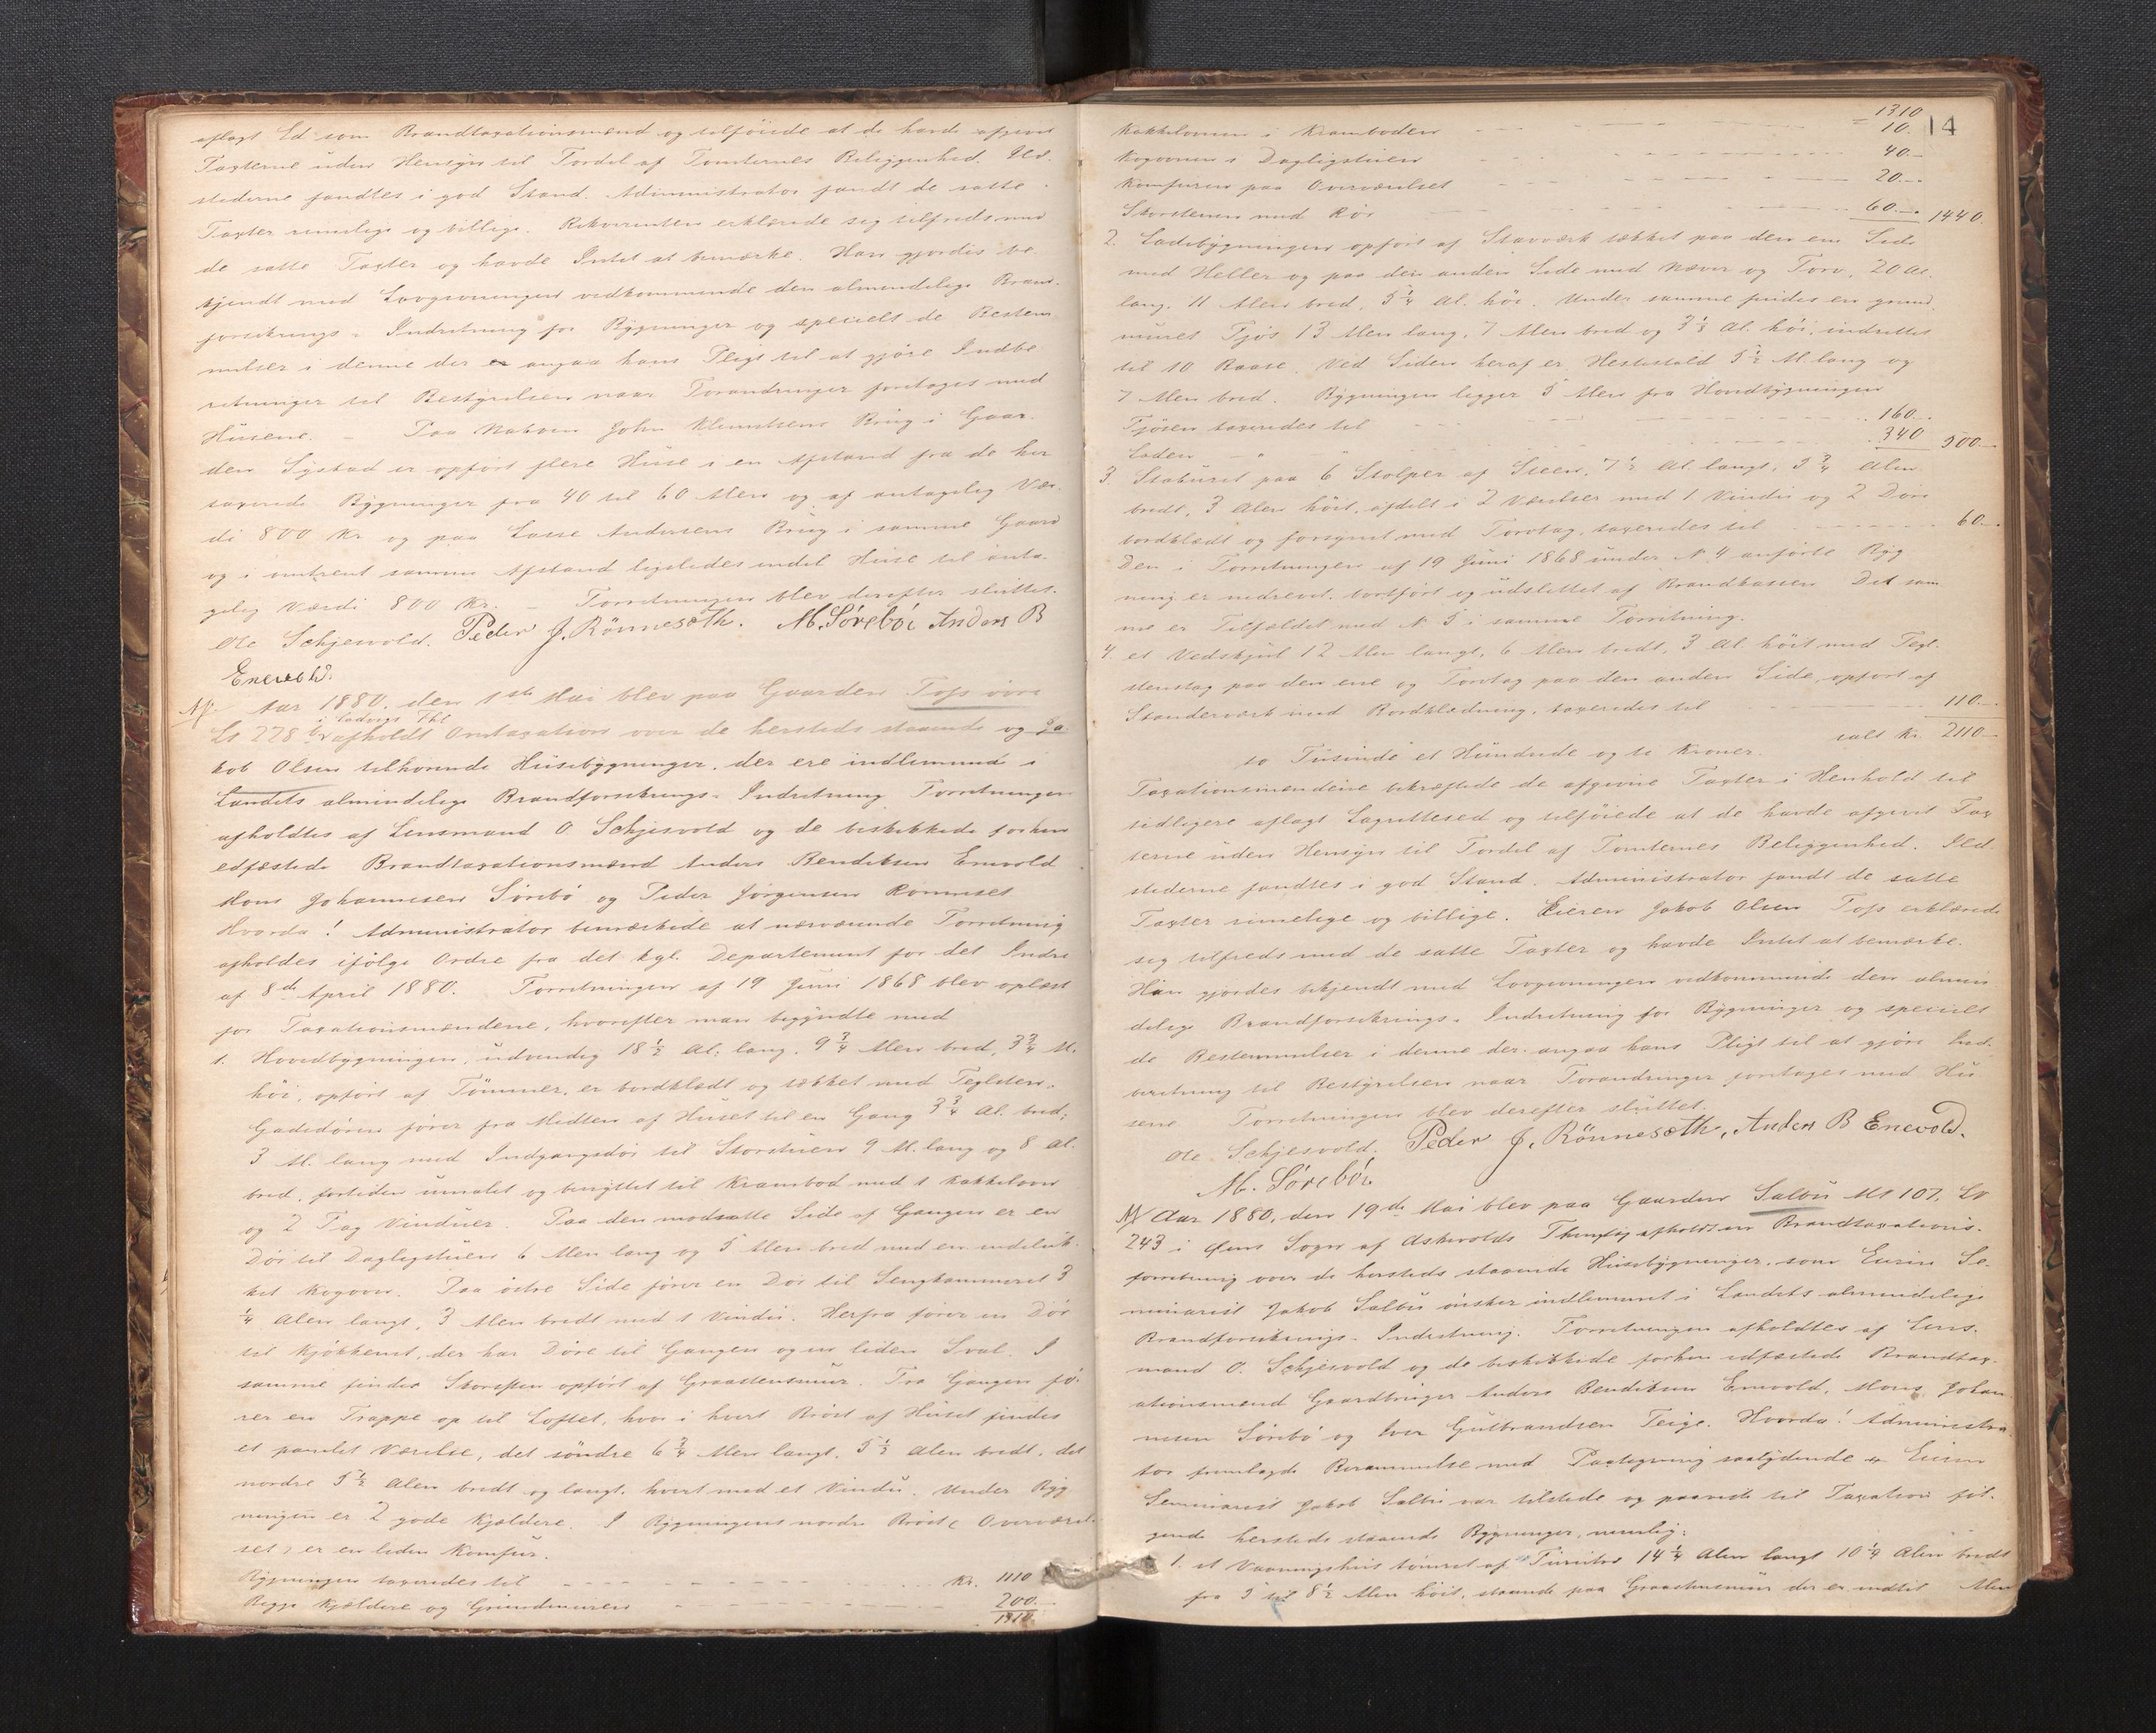 aflagt Ed som Brandtaxationsmænd og tilføiede at de havde afgivet
Taxterne uden Hensyn til Fordel af Tomternes Beliggenhed. Ild-
stederne fandtes i god Stand. Administrator fandt de satte
Taxter rimelige og billige. Rekvirenten erklærede sig tilfreds med
de satte Taxter og havde Intet at bemærke. Han gjordes be
kjendt med Lovgivningen vedkommende den almindelige Brand-
forsikrings-Indretning for Bygninger og specielt de Bestem
melser i denne der angaa hans Pligt til at gjöre Indbe
retninger til Bestyrelsen naar Forandringer foretages med
Husene. – Paa Naboen John Klemetsens Brug i Gaar-
den Systad er opført flere Huse i en Afstand fra de her
taxerede Bygninger fra 40 til 60 Alen og af antagelig Vær-
di 800 Kr og paa Lasse Andersens Brug i samme Gaard
og i omtrent samme Afstand ligeledes endel Huse til anta-
gelig Værdi 800 Kr. – Forretningen blev derefter sluttet.
Ole Schjesvold. Peder J. Rönnesæth. M. Sörebö Anders B
Enevold.
Aar 1880, den 1ste Mai blev paa Gaarden Tofs övre
i Ladvigs Thl
Ls 228 b, afholdt Omtaxation over de hersteds staaende og Ja
kob Olsen tilhørende Husebygninger, der ere indlemmede i
Landets almindelige Brandforsikrings-Indretning Forretningen
afholdtes af Lensmand O. Schjesvold og de beskikkede forhen
edfæstede Brandtaxationsmænd Anders Bendiksen Enevold
Mons Johannesen Sörebö og Peder Jørgensen Rönneset
Hvorda! Administrator bemærkede at nærværende Forretning
afholdes ifølge Ordre fra det kgl. Departement for det Indre
af 8de April 1880. Forretningen af 19 Juni 1868 blev oplæst
for Taxationsmændene, hvorefter man begyndte med
1. Hovedbygningen, udvendig 18 1/2 Al. lang, 9 3/4 Alen bred, 3 3/4 Al.
høi, opført af Tømmer, er bordklædt og tækket med Teglsten.
Gadedøren fører fra Midten af Huset til en Gang 3 3/4 Al. bred,
3 Al. lang med Indgangsdør til Storstuen 9 Al. lang og 8 Al.
bred, fortiden umalet og benyttet til Krambod med 1 Kakkelovn
og 2 Fag Vinduer. Paa den modsatte Side af Gangen er en
Dör til Dagligstuen 6 Alen lang og 5 Alen bred med en indeluk-
ket Kogovn. Paa östre Side fører en Dør til Sengkammeret 3
1/4 Alen langt, 3 Alen bredt med 1 Vindu. Herfra fører en Dör
til Kjøkkenet, der har Döre til Gangen og en liden Sval. I
samme findes Skorsten opfört af Graastensmuur. Fra Gangen fö-
rer en Trappe op til Loftet, hvor i hvert Bröst af Huset findes
et panelet Værelse, det söndre 6 3/4 Alen langt, 5 1/2 Alen bredt, det
nordre 5 1/2 Alen bredt og langt, hvert med et Vindu. Under Byg
ningen er 2 gode Kjældere. I Bygningens nordre Bröst (Overværel-
set) er en liden Komfur.
Bygningen taxeredes til Kr. 1110
Begge Kjældere og Grundmuren 200.–
1310.
14
1310
Kakkelovnen i Kramboden 10.
Kogovnen i Dagligstuen 40.–
Komfuren paa Overværelset 20.–
Skorstenen med Rör 60.– 1440.
2. Ladebygningen opfört af Stavværk tækket paa den ene Side
med Heller og paa den anden Side med Næver og Torv, 20 Al.
lang, 11 Alen bred, 5 1/4 Al. höi. Under samme findes en grund
muret Fjös 13 Alen lang, 7 Alen bred og 3 1/2 Al. höi, indrettet
til 10 Baase. Ved Siden heraf er Hestestald 5 1/2 Al. lang og
7 Alen bred. Bygningen ligger 5 Alen fra Hovedbygningen
Fjösen taxeredes til 160.–
Laden – " – 340 500.–
3. Stabüret paa 6 Stolper af Steen, 7 1/2 Al. langt, 5 3/4 Alen
bredt, 3 Alen höit, afdelt i 2 Værelser med 1 Vindu og 2 Döre
bordklædt og forsynet med Torvtag, taxeredes til 60.–
Den i Forretningen af 19 Juni 1868 under N 4 anförte Byg
ning er nedrevet, bortfört og udslettet af Brandkassen Det sam
me er Tilfældet med N 5 i samme Forretning.
4. et Vedskjul 12 Alen langt, 6 Alen bredt, 3 Al. höit med Tegl-
stenstag paa den ene og Torvtag paa den anden Side, opfört af
Standerværk med Bordklædning, taxeredes til 110.–
ialt Kr. 2110.–
to Tusinde et Hundrede og ti Kroner.
Taxationsmændene bekræftede de afgivne Taxter i Henhold til
tidligere aflagt Lagrettesed og tilföiede at de havde afgivet Tax
terne uden Hensyn til Fordel af Tomternes Beliggenhed. Ild-
stederne fandtes i god Stand. Administrator fandt de satte
Taxter rimelige og billige. Eieren Jakob Olsen Tofs erklærede
sig tilfreds med de satte Taxter og havde Intet at bemærke.
Han gjordes bekjendt med Lovgivningen vedkommende den almin
delige Brandforsikrings-Indretning for Bygninger og specielt
de Bestemmelser i denne der angaa hans Pligt til at gjöre Ind-
beretning til Bestyrelsen naar Forandringer foretages med Hu
sene Forretningen blev derefter sluttet.
Ole Schjesvold. Peder J. Rönnesæth, Anders B Enevold.
M. Sörebö.
Aar 1880, den 19de Mai blev paa Gaarden Salbu M 107, L
243 i Sogn af Askvolds Thinglag afholdt en Brandtaxations-
forretning over de hersteds staaende Husebygninger, som Eieren Se-
minarist Jakob Salbu önsker indlemmet i Landets almindelige
Brandforsikrings-Indretning. Forretningen afholdtes af Lens-
mand O. Schjesvold og de beskikkede forhen edfæstede Brandtax-
ationsmænd Gaardbruger Anders Bendiksen Enevold, Mons Johan
nesen Sörebö og Iver Gulbrandsen Teige. Hvorda! Administra-
tor fremlagde Berammelse med Paategning saalydende Eieren
Seminarist Jakob Salbu var tilstede og paaviste til Taxation föl-
gende hersteds staaende Bygninger, nemlig:
1. et Vaaningshus tömret af Furutöv 14 1/4 Alen langt 10 1/4 Alen bredt
fra 5 til 8 1/2 Alen höit, staaende paa Graastensmuur der er indtil Alen